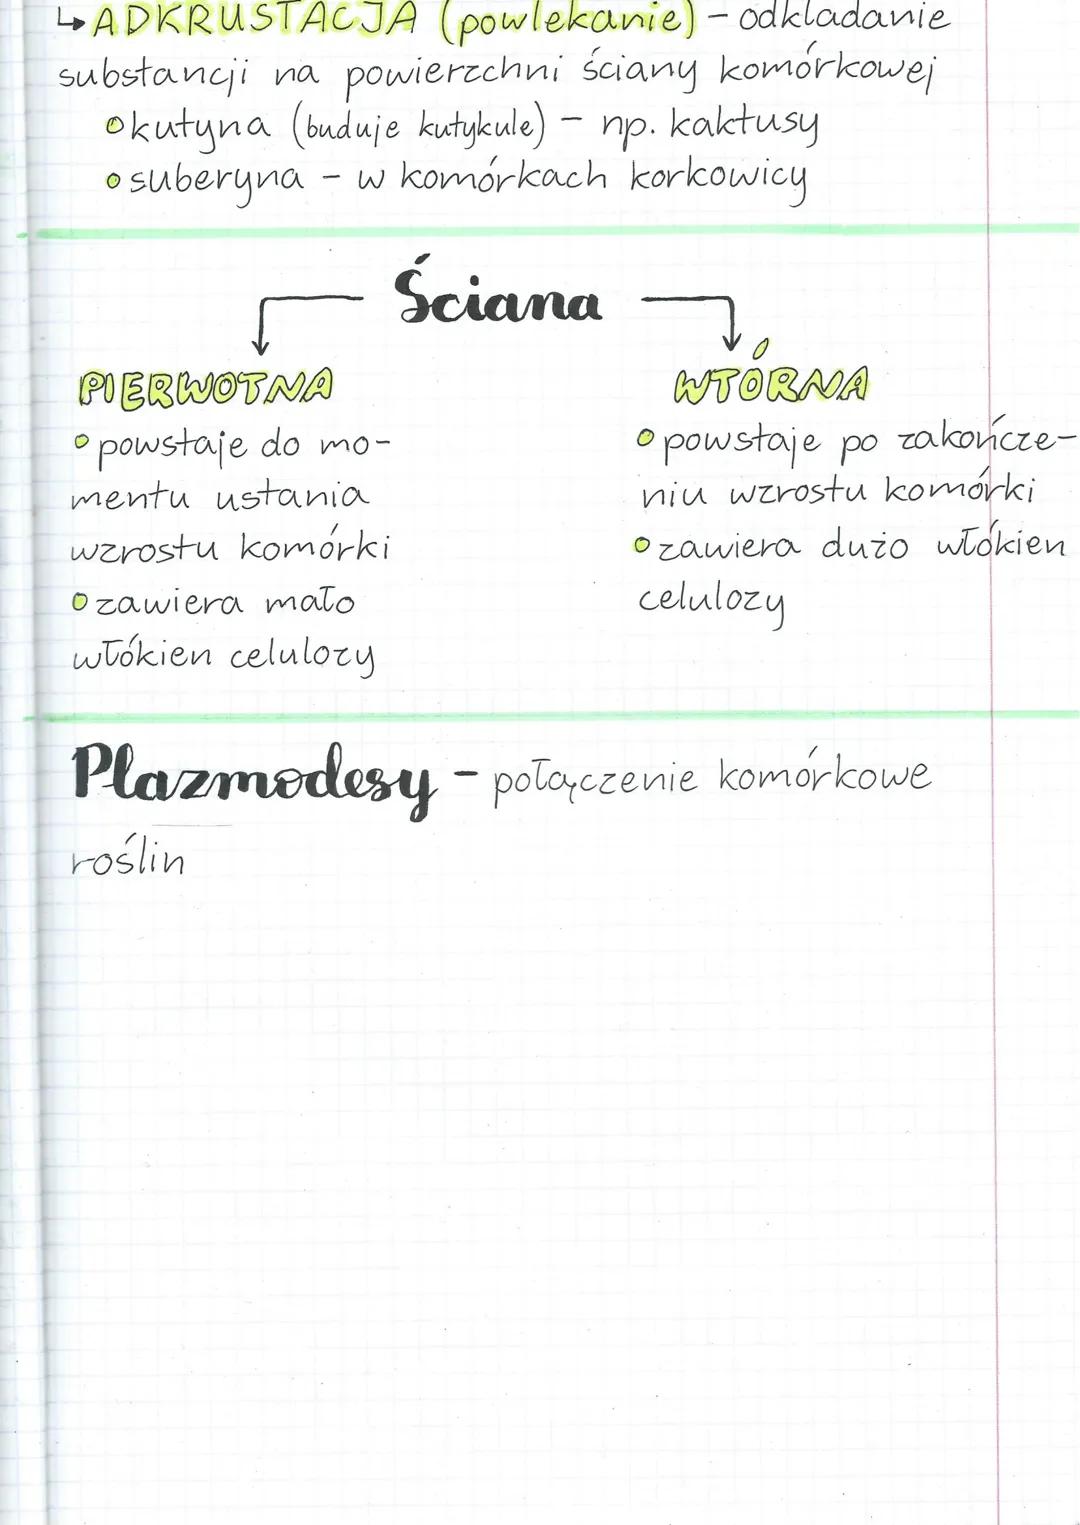 ↳ ADKRUSTACJA (powlekanie) – odkładanie
substancji na powierzchni ściany komórkowej
kutyna (buduje kutykule) – np. kaktusy
suberyna – w komórkach korkowicy
Ściana
PIERWOTNA
powstaje do mo-
mentu ustania
wzrostu komórki
zawiera mało
włókien celulozy
WTÓRNA
powstaje po zakończe-
niu wzrostu komórki
zawiera dużo włókien
celulozy
Plazmodesy – połączenie komórkowe
roślin